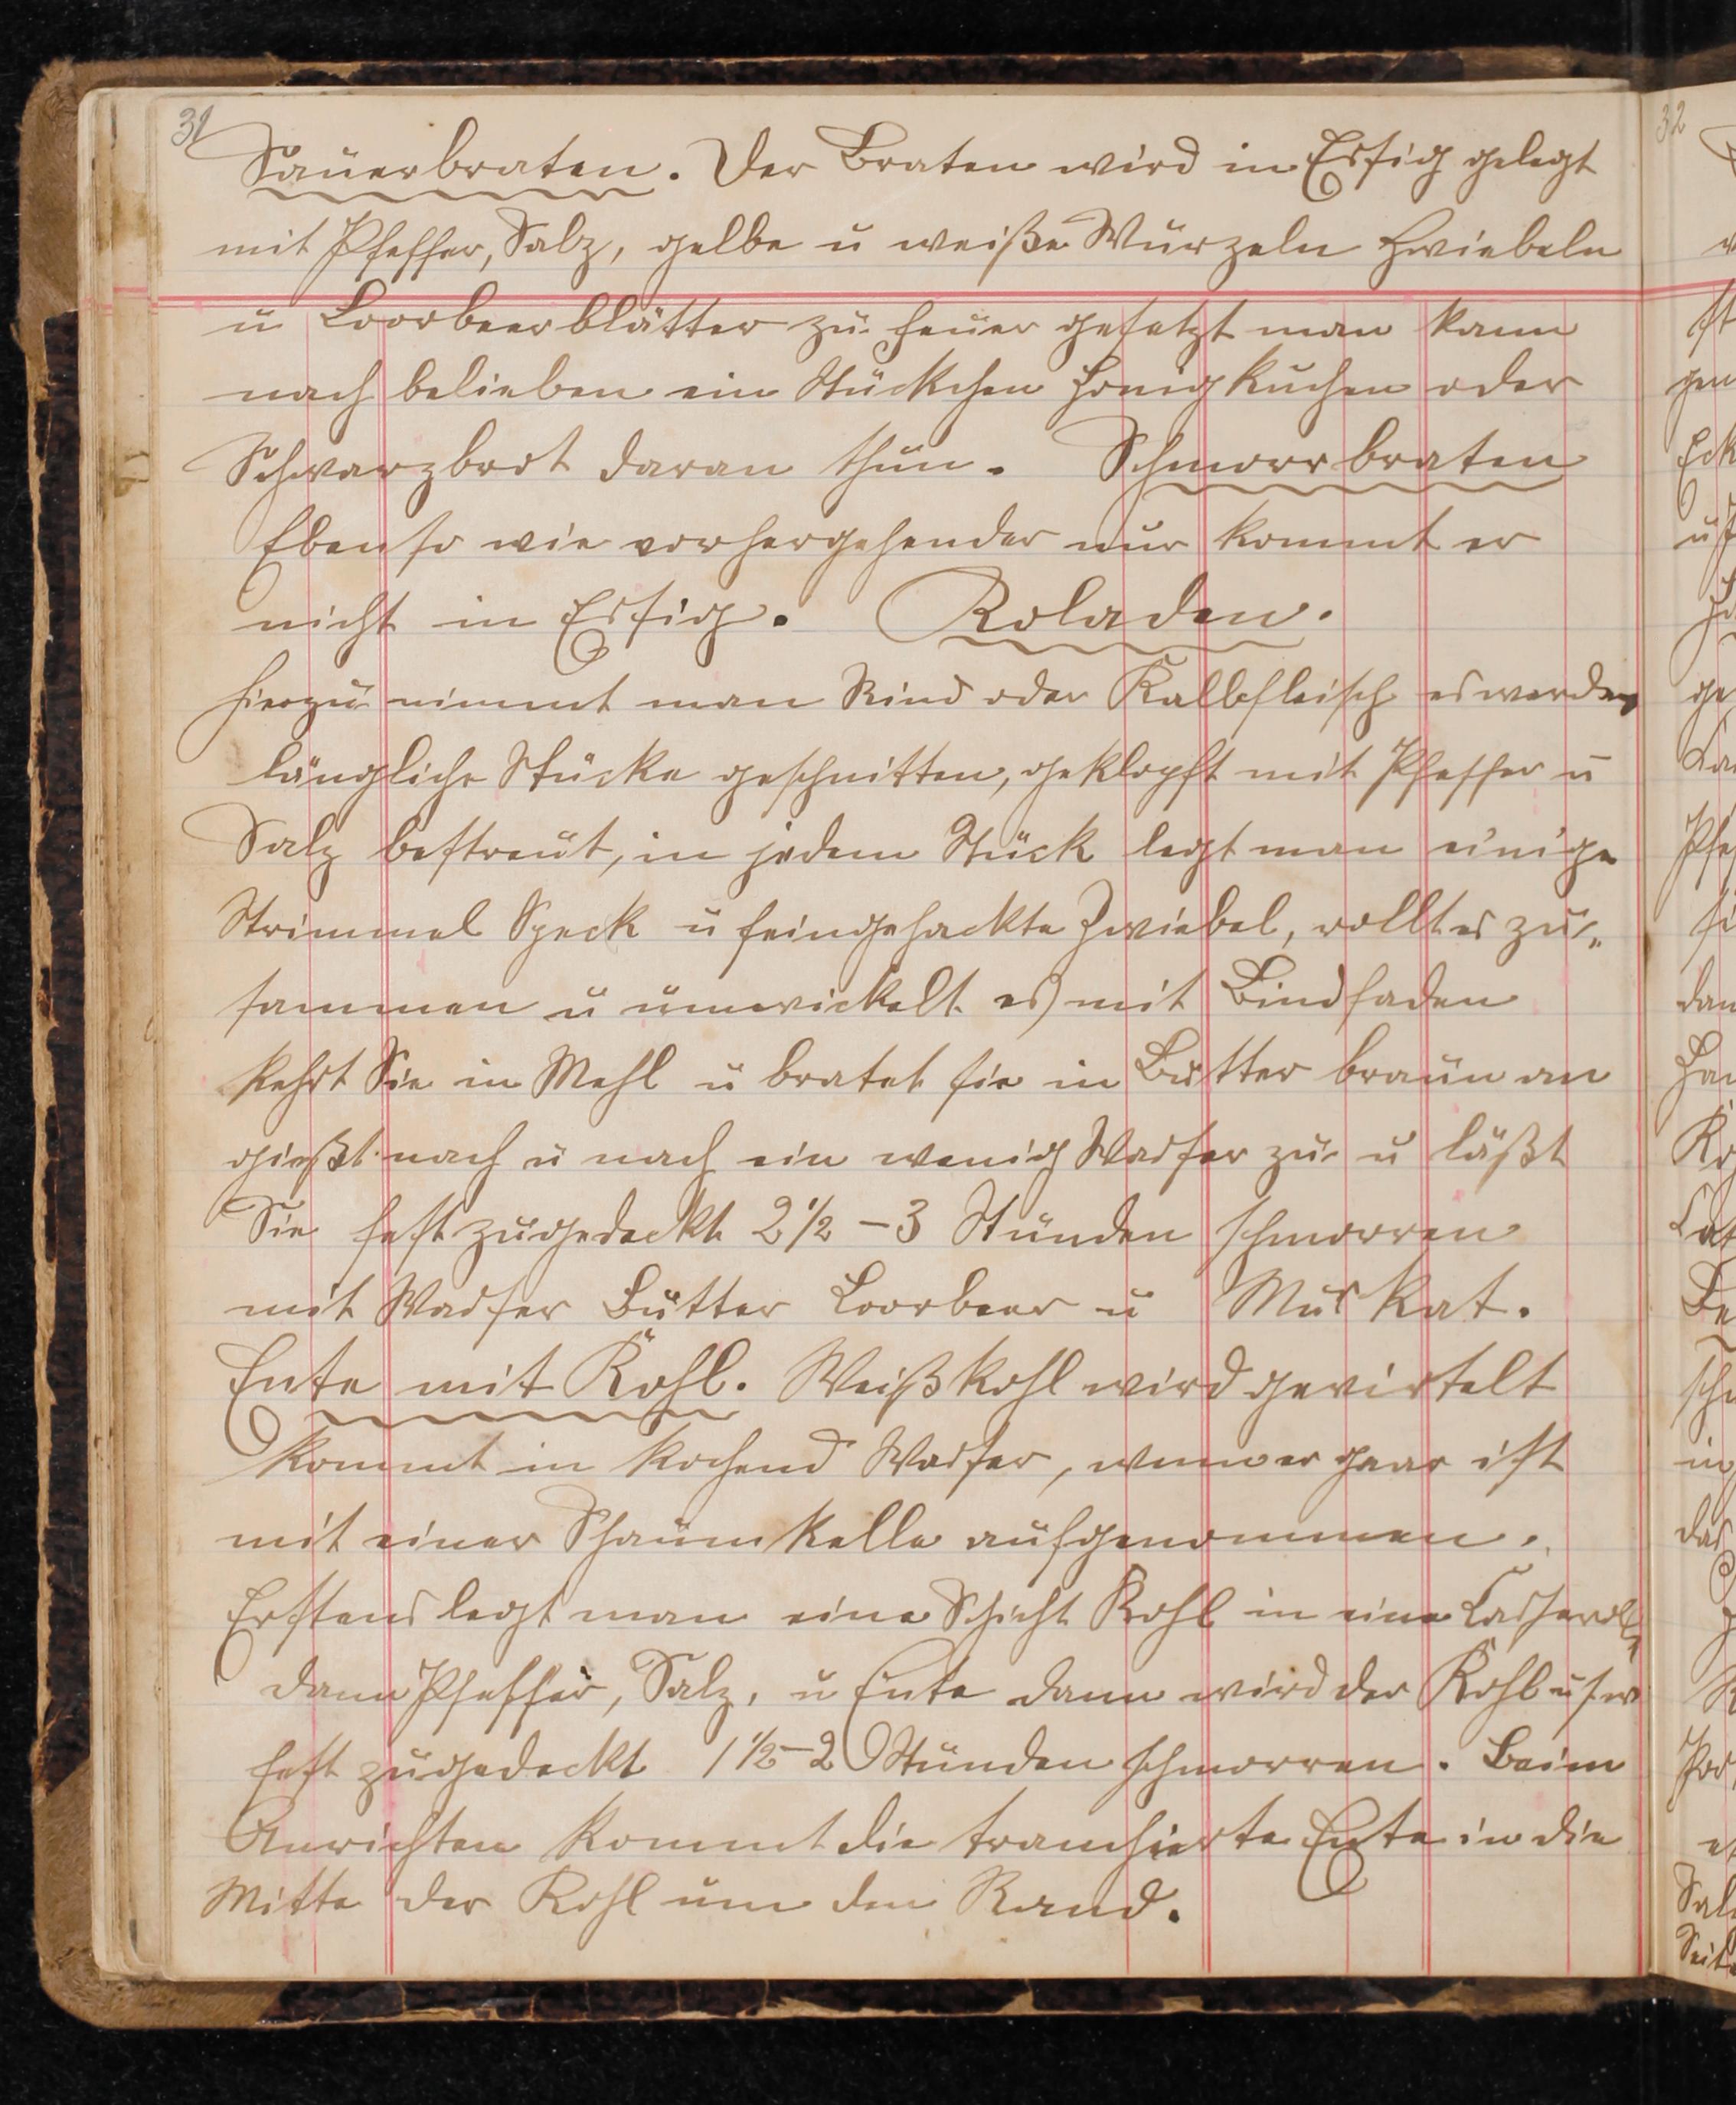 31
Sauerbraten. Der Braten wird in Essig gelegt
mit Pfeffer, Salz, gelbe u weiße Wurzeln Zwiebeln
u Loorbeerblätter zu feuer gesetzt man kann
nach belieben ein Stückchen Honigkuchen oder
Schwarzbrot daran thun. Schmorrbraten
Ebenso wie vorhergehender nur kommt er
nicht in Essig. Roladen.
hierzu nimmt man Rind oder Kalbfleisch es werden
längliche Stücke geschnitten, geklopft mit Pfeffer u
Salz bestreut, in jedem Stück legt man einige
Strimmel Speck u feingehackte Zwiebel, rollt es zu„
sammen u umwickelt es mit Bindfaden
kehrt Sie in Mehl u bratet sie in Butter braun an
gießt nach u nach ein wenig Wasser zu u läßt
Sie fest zugedeckt 2 1/2 – 3 Stunden schmorren
mit Wasser Butter Loorbeer u Muskat.
Ente mit Kohl. Weißkohl wird geviertelt
kommt in kochend Wasser, wenn er gaar ist
mit einer Schaumkelle aufgenommen.
Erstens legt man eine Schicht Kohl in eine Casserolle
dann Pfeffer, Salz, u Ente dann wird der Kohl usw
fest zugedeckt 1 1/2 – 2 Stunden schmorren. Beim
Anrichten kommt die tranchierte Ente in die
Mitte der Kohl um den Rand.
32